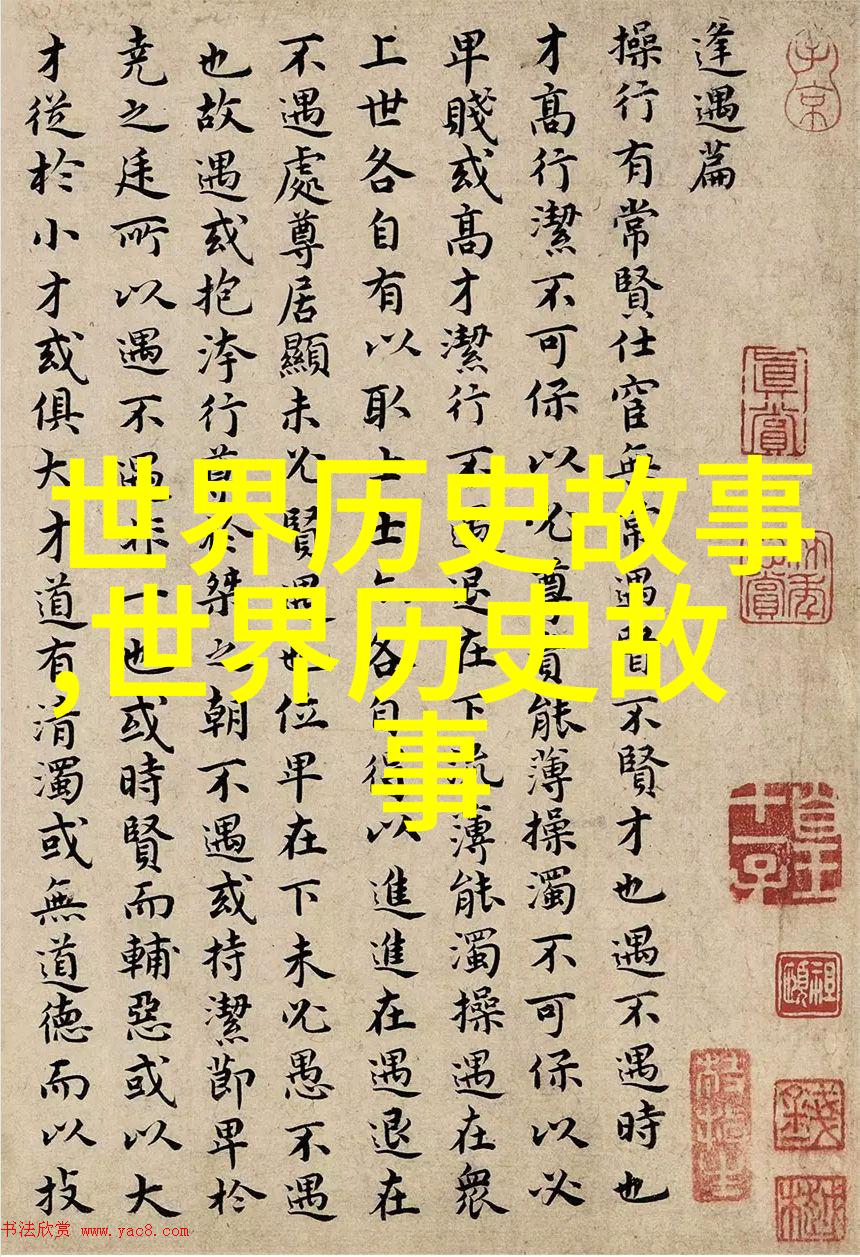 逢遇篇
操行有常賢仕宦無常遇賢不賢才也遇不遇時也
才高行潔不可保以必尊貴能薄操濁不可保以必
卑賤或高才潔行不遇退在下流薄能濁操遇在衆
上世各自有以取士士亦各自得以進進在遇退在
不遇處尊居顯未必賢遇也位卑在下未必愚不遇
也故遇或抱洿行尊於桀之朝不遇或持潔節卑於
尭之廷所以遇不遇非一也或時賢而輔惡或以大
才從於小才或俱大才道有清濁或無道德而以技
子京
真賞
世界历史故事
,世界历史故
事
书法欣赏 www.yac8.com